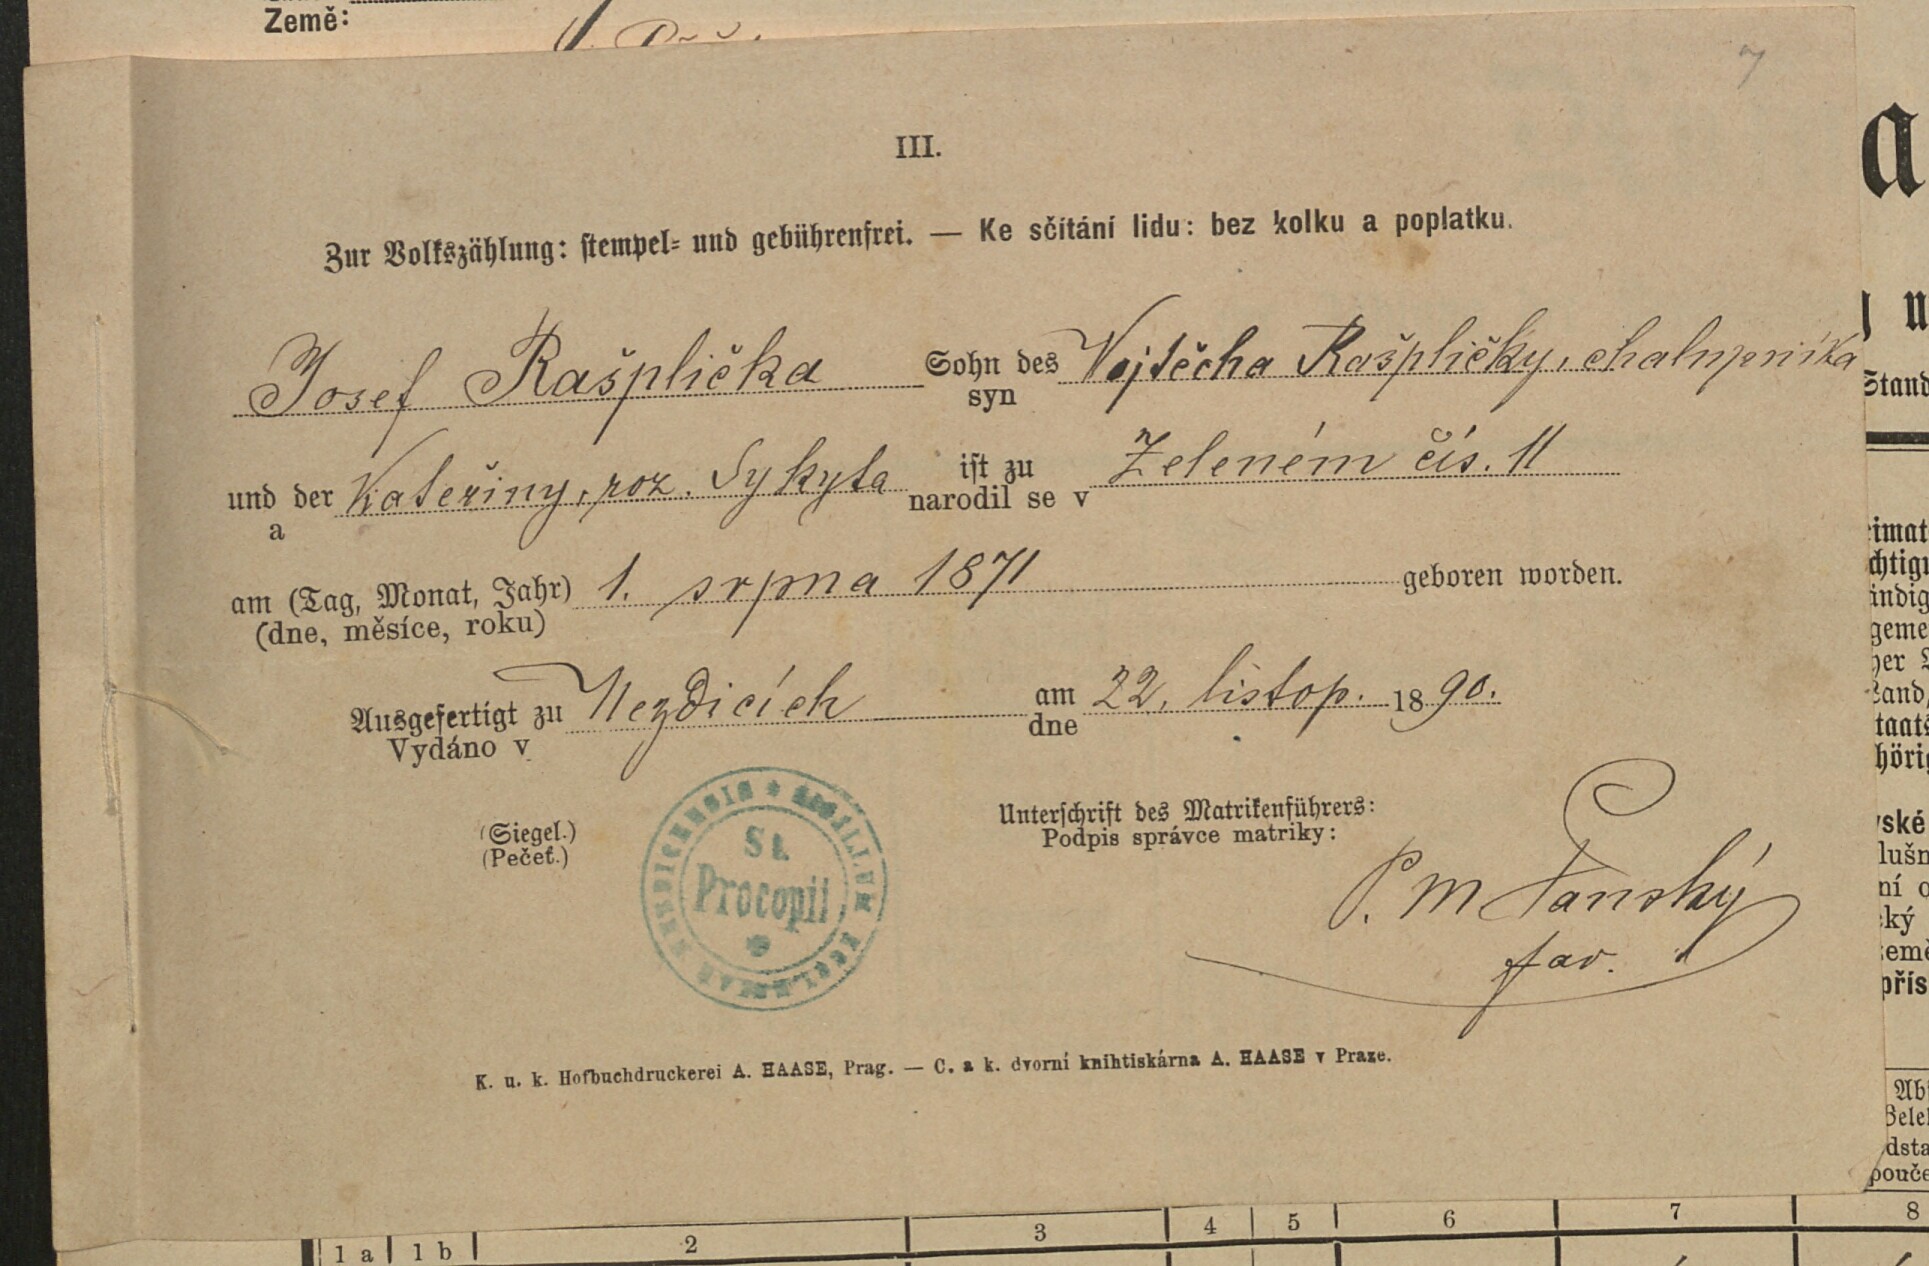 Země:
III.
Zur Volkszählung: stempel- und gebührenfrei. — Ke sčítání lidu: bez kolku a poplatku.
Josef Rašplička Sohn des Vojtěcha Rašpličky, chalupníka
syn
und der Kateřiny, roz. Sykyta ist zu Zeleném čís. 11
a narodil se v
am (Tag, Monat, Jahr) 1. srpna 1871 geboren worden.
(dne, měsíce, roku)
Ausgefertigt zu Nezdicích am 22. listop. 1890.
Vydáno v dne
(Siegel.)
(Pečeť.)
St.
Procopii
Unterschrift des Matrikenführers:
Podpis správce matriky:
P. M Fanský
far.
K. u. k. Hofbuchdruckerei A. HAASE, Prag. — C. a k. dvorní knihtiskárna A. HAASE v Praze.
1 a 1 b 2 3 4 5 6 7 8